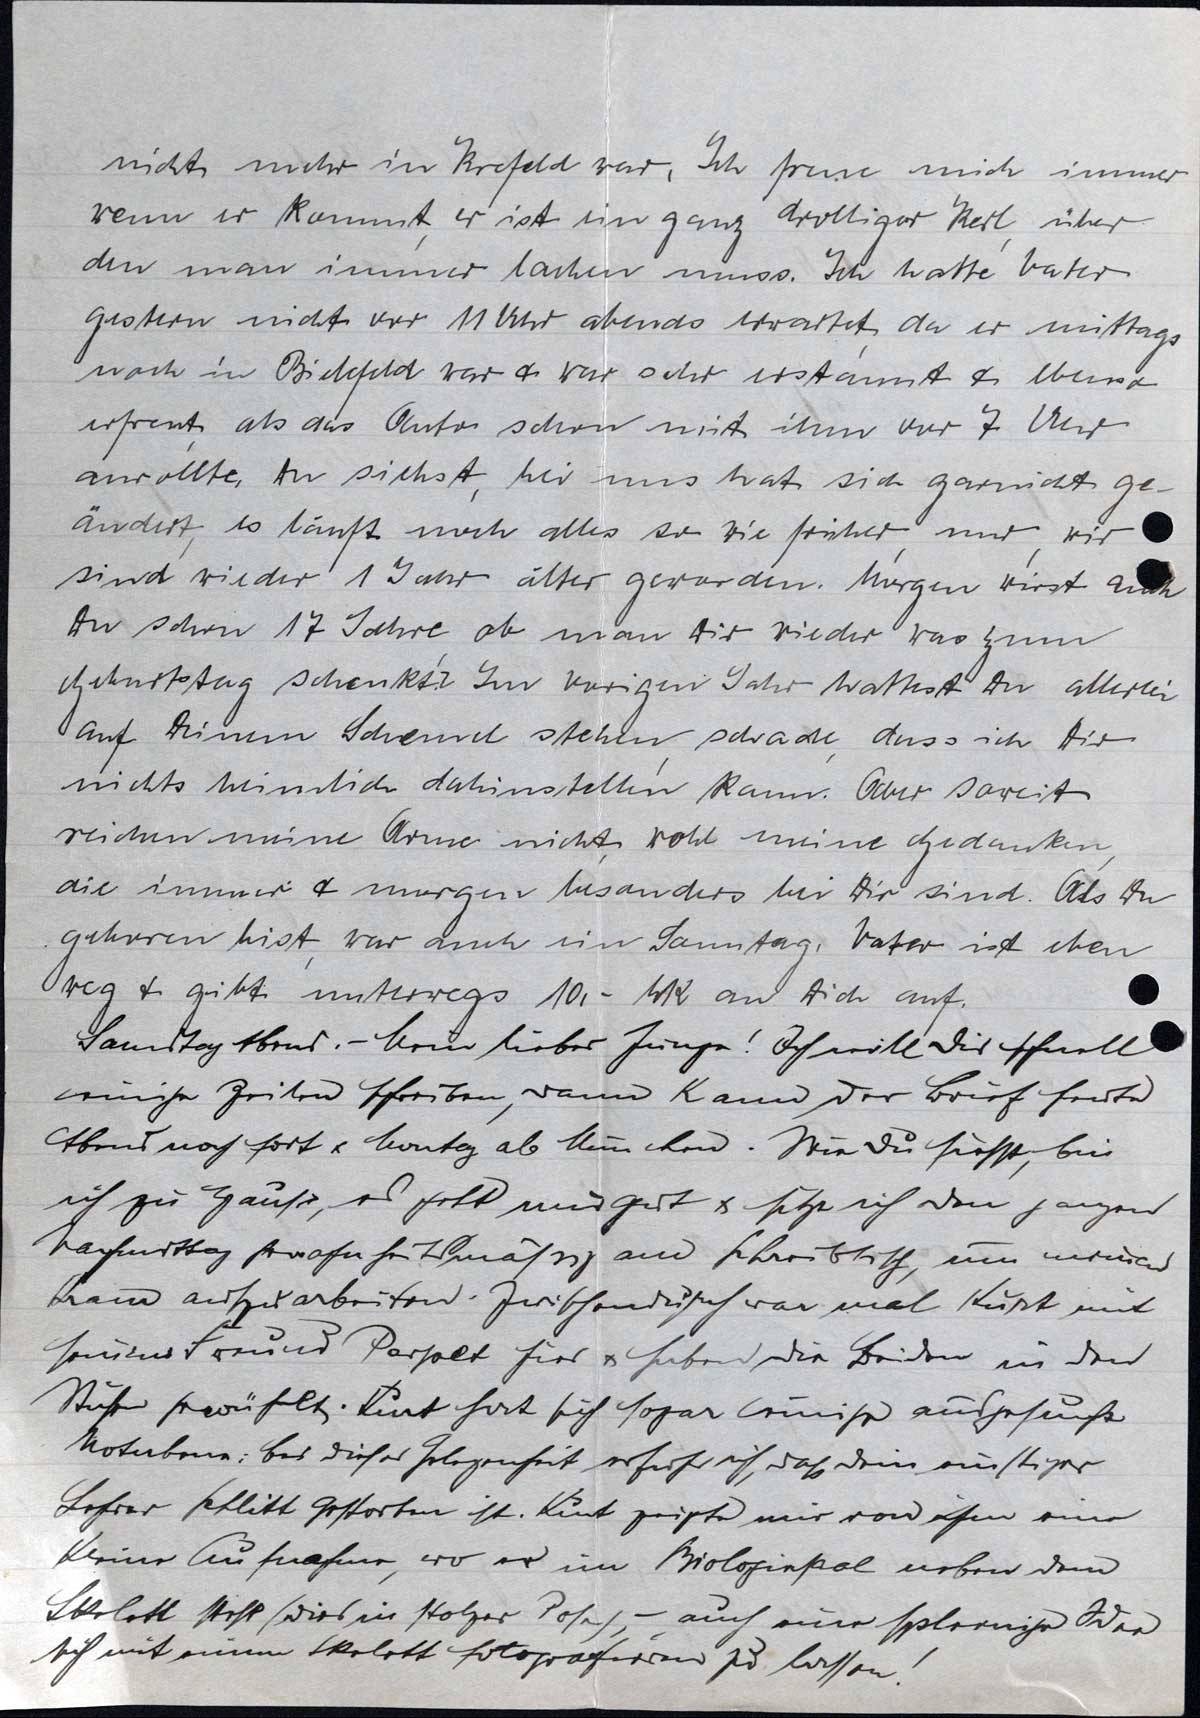 nicht mehr in Krefeld war, Ich freue mich immer
wenn er kommt, er ist ein ganz drolliger Kerl, über
den man immer lachen muss. Ich hatte Vater
gestern nicht vor 11 Uhr abends erwartet, da er mittags
noch in Bielefeld war & war sehr erstaunt & ebenso
erfreut, als das Auto schon mit ihm vor 7 Uhr
anrollte. Du siehst, bei uns hat sich garnicht ge-
ändert, es läuft noch alles so wie früher, nur, wir
sind wieder 1 Jahr älter geworden. Morgen wirst auch
Du schon 17 Jahre, ob man Dir wieder was zum
Geburtstag schenkt? Im vorigen Jahr hattest Du allerlei
auf Deinem Schemel stehen, schade, dass ich Dir
nichts heimlich dahinstellen kann. Aber soweit
reichen meine Arme nicht, wohl meine Gedanken,
die immer & morgen besonders bei Dir sind. Als Du
geboren bist, war auch ein Sonntag. Vater ist eben
weg & gibt unterwegs 10,- Mk an Dich auf.
Samstag Abend. - Mein lieber Junge! Ich will Dir schnell
einige Zeilen schreiben, dann kann der Brief heute
Abend noch fort & Montag ab München. Wie Du siehst, bin
ich zu Hause, es geht mir gut & sitze ich den ganzen
Nachmittag gewohnheitsmässig am Schreibtisch, um meinen
Kram aufzuarbeiten. Zwischendurch war mal Kurt mit
seinem Freund hier & haben die Beiden in den
gewühlt. Kurt hat sich sogar einige ausgesucht
Notabene: bei dieser Gelegenheit erfuhr ich, daß dein einstiger
Lehrer Schlitt gestorben ist. Kurt zeigte mir von ihm eine
kleine Aufnahme, wo er im Biologiesaal neben dem
Skelett steht (dies in stolzer Pose), - auch eine spleenige Idee
sich mit einem Skelett fotografieren zu lassen!